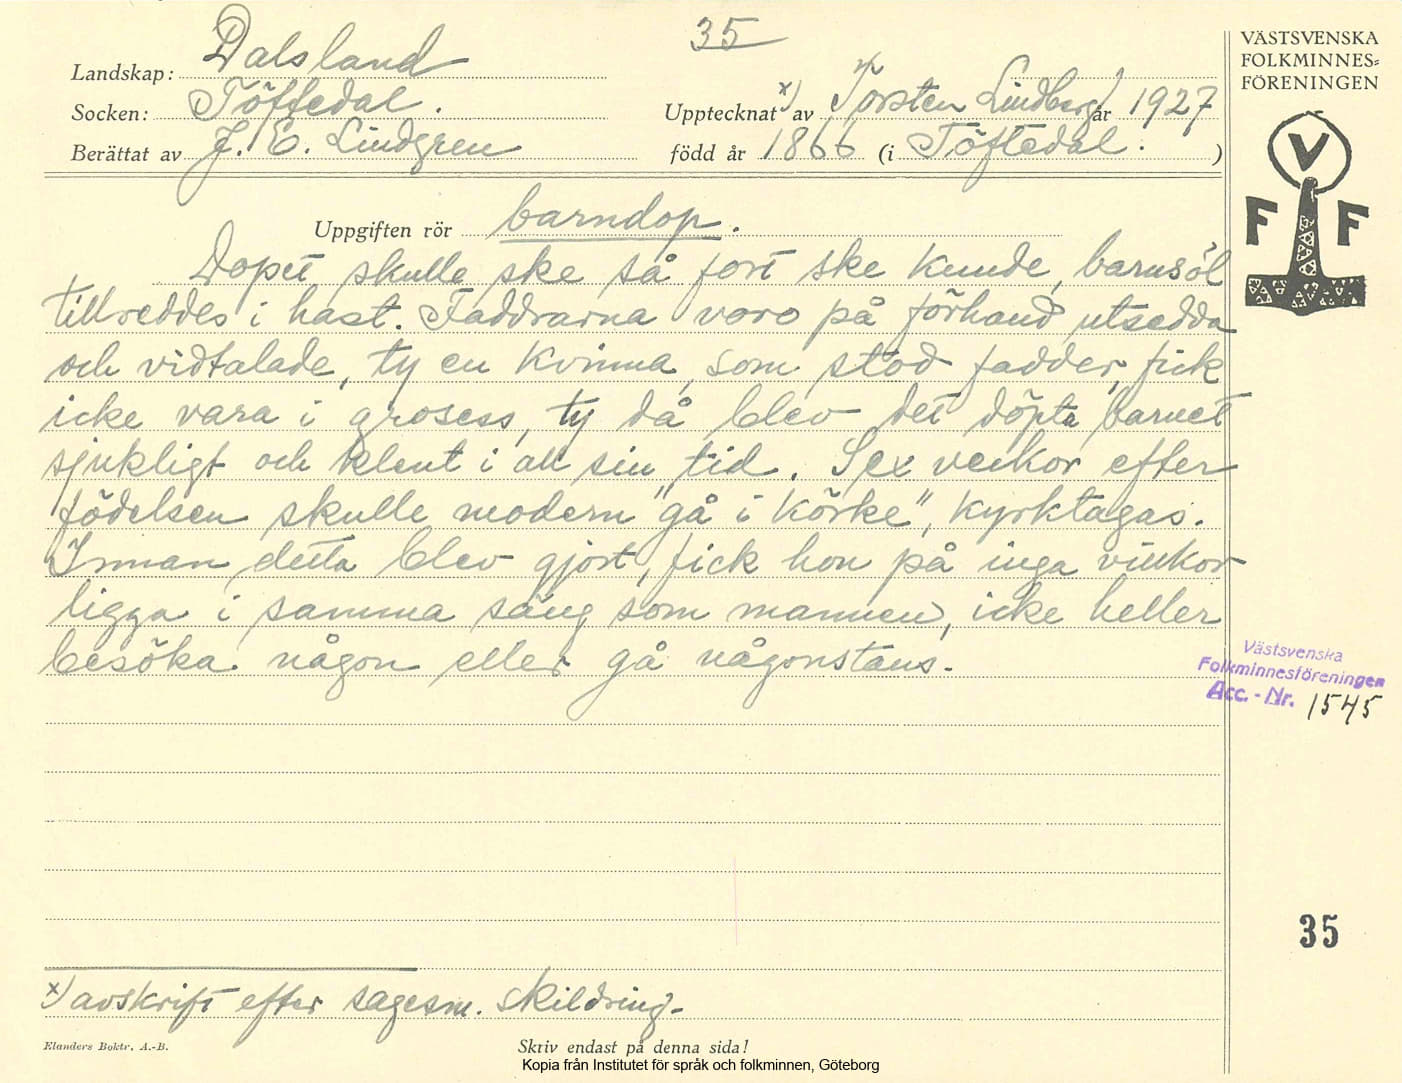 35
Landskap: Dalsland
Socken: Töftedal.
Upptecknat x) av Torsten Lindberg år 1927
Berättat av J. E. Lindgren
född år 1866 (i Töftedal. )
Uppgiften rör barndop.
Dopet skulle ske så fort ske kunde, barnsöl
tillreddes i hast. Faddrarna voro på förhand utsedda
och vidtalade, ty en kvinna, som stod fadder, fick
icke vara i grosess, ty då blev det döpta barnet
sjukligt och klent i all sin tid. Sex veckor efter
födelsen skulle modern "gå i körke", kyrktagas.
Innan detta blev gjort, fick hon på inga villkor
ligga i samma säng som mannen, icke heller
besöka någon eller gå någonstans.
x) avskrift efter sagesm. skildring.
Elanders Boktr. A.-B.
Skriv endast på denna sida!
Kopia från Institutet för språk och folkminnen, Göteborg
VÄSTSVENSKA
FOLKMINNES=
FÖRENINGEN
V
F F
Västsvenska
Folkminnesföreningen
Acc. - Nr. 1545
35